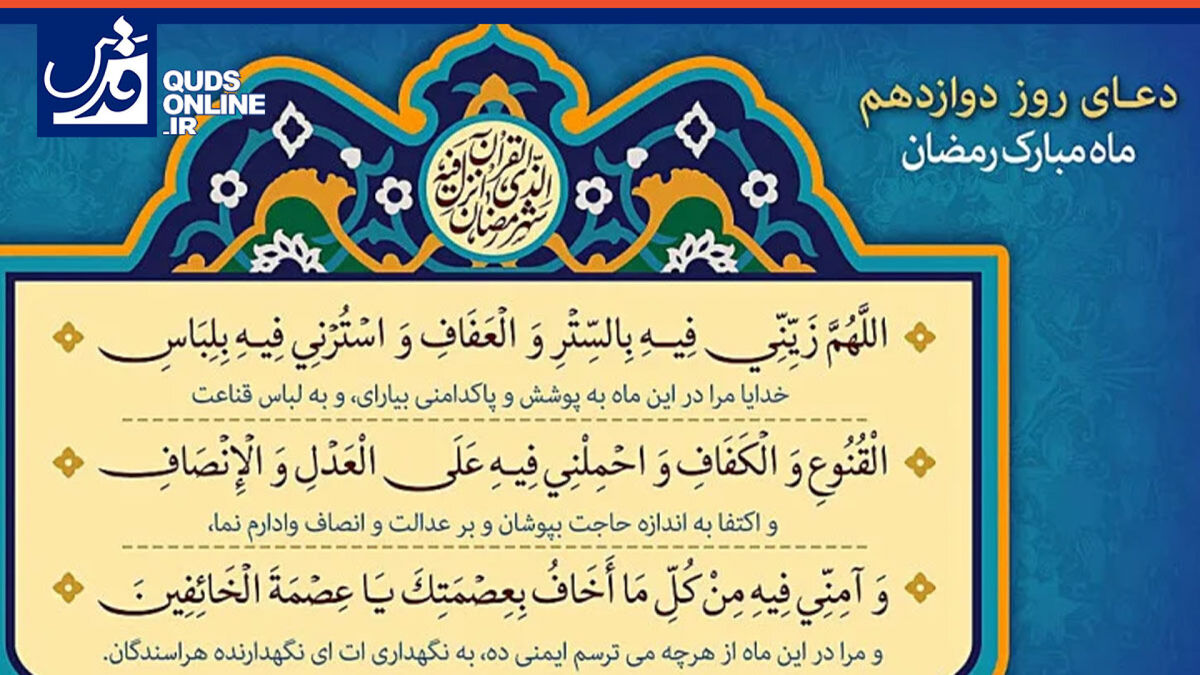 قدس
QUDS
ONLINE
.IR
دعـای روز دوازدهم
ماه مبارک رمضان
شهر رمضان الذی انزل فیه القرآن
اللَّهُمَّ زَيِّنِّي فِيهِ بِالسِّتْرِ وَ الْعَفَافِ وَ اسْتُرْنِي فِيهِ بِلِبَاسِ
خدایا مرا در این ماه به پوشش و پاکدامنی بیارای، و به لباس قناعت
الْقُنُوعِ وَ الْكَفَافِ وَ احْمِلْنِي فِيهِ عَلَى الْعَدْلِ وَ الْإِنْصَافِ
و اکتفا به اندازه حاجت بپوشان و بر عدالت و انصاف وادارم نما،
وَ آمِنِّي فِيهِ مِنْ كُلِّ مَا أَخَافُ بِعِصْمَتِكَ يَا عِصْمَةَ الْخَائِفِينَ
و مرا در این ماه از هرچه می ترسم ایمنی ده، به نگهداری ات ای نگهدارنده هراسندگان.